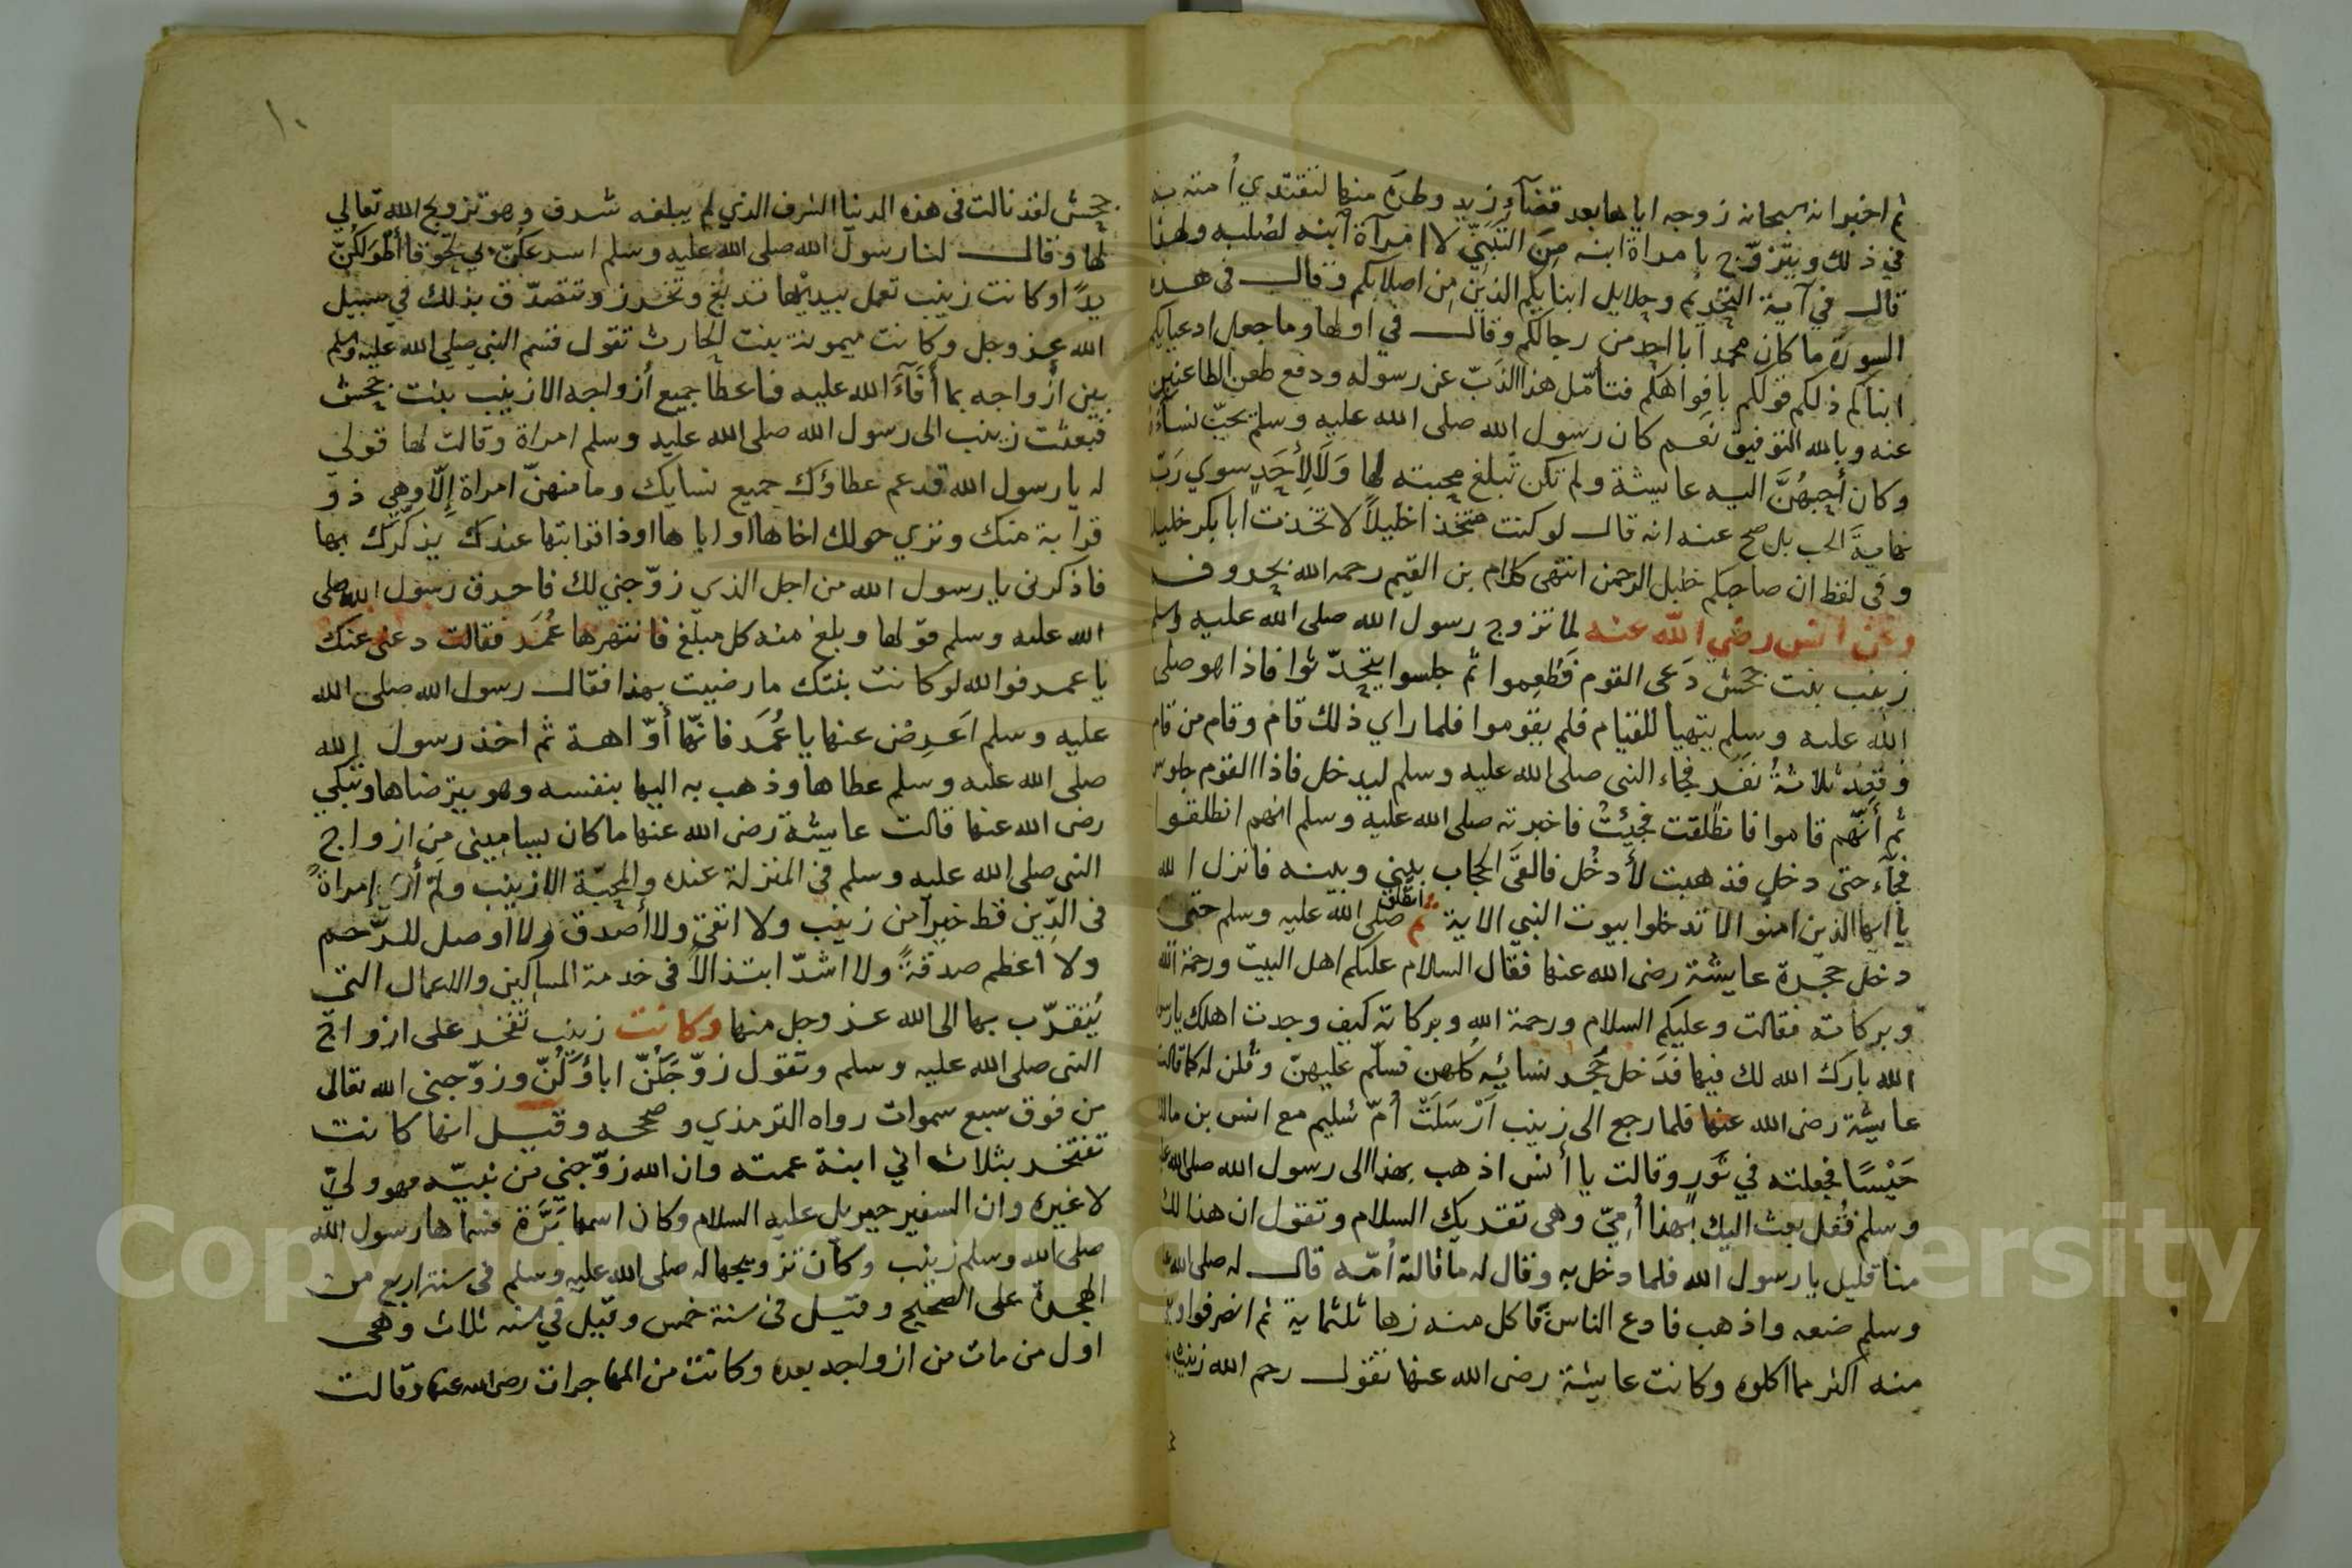 ثم اخبر انه سبحانه زوجه اياها بعد قضآء زيد وطره منها لتقتدي أمته به
في ذلك ويتزوّج بامراة ابنه مِنَ التَبَنِيّ لا امرآة آبنه لصُلبه ولهذا
قال في آية التحريم وحلايل ابنايكم الذين مِن اصلابكم وقال في هذه
السورة ما كان محمد ابا احد من رجالكم وقال في اولها وما جعل ادعيايكم
ابناكم ذلكم قولكم بافواهكم فتأمّل هذا الذبّ عن رسوله ودفع طعن الطاعنين
عنه وبالله التوفيق نعم كان رسول الله صلى الله عليه وسلم يحبّ نسآءه
وكان أحبهُنَّ اليه عايشة ولم تكن تبلغ محبته لها وَلَا لِأحَدٍ سوي رَبّ
نهايةَ الحب بل صح عنه انه قال لو كنت متخذا خليلاً لاتخذت ابا بكر خليلا
وفي لفظ ان صاحبكم خليل الرحمن انتهى كلام بن القيم رحمه الله بحروفه
وعن انس رضي الله عنه لما تزوج رسول الله صلى الله عليه وسلم
زينب بنت جحش دَعى القوم فَطَعِموا ثم جلسوا يتحدّثوا فاذا هو صلى
الله عليه وسلم يتهيا للقيام فلم يقوموا فلما راي ذلك قام وقام من قام
وقعد ثلاثةُ نفَر فجاء النبى صلى الله عليه وسلم ليدخل فاذا القوم جلوس
ثم أنّهم قاموا فانطلقت فجيئتُ فاخبرته صلى الله عليه وسلم انهم انطلقوا
فجآء حتى دخل فذهبت لأدخُل فالقىَ الحجاب بيني وبينه فانزل الله
يا ايها الذين امنوا لا تدخلوا بيوت النبي الاية ثم انطلق صلى الله عليه وسلم حتى
دخل حجرة عايشة رضى الله عنها فقال السلام عليكم اهل البيت ورحمة الله
وبركاته فقالت وعليكم السلام ورحمة الله وبركاته كيف وجدت اهلك يارسول
الله بارك الله لك فيها فدَخل حُجَر نسائِه كلهن فسلّم عليهنّ وقلن له كما قالت
عايشة رضى الله عنها فلما رجع الى زينب اَرْسَلَتْ أمّ سُليم مع انس بن مالك
حَيْسًا فجعلته في تَورٍ وقالت يا أنس اذهب بهذا الى رسول الله صلى الله عليه
وسلم فقُل بعث اليك بهذا أُمّيّ وهى تقريك السلام وتقول ان هذا لك
منا قليل يا رسول الله فلما دخل به وقال له ما قالته أمّه قال له صلى الله عليه
وسلم ضعه واذهب فادع الناس فاكل منه زها ثلثماية ثم انصرفوا
منه اكثر مما اكلوه وكانت عايشة رضى الله عنها تقول رحم الله زينب بنت
١٠
جحش لقد نالت في هذه الدنيا الشرف الذي لم يبلغه شرف وهو تزويج الله تعالي
لها وقال لنا رسول الله صلى الله عليه وسلم اسرعكُنّ بي لحُوقا أطْوَلكُنّ
يدًا وكانت زينب تعمل بيديْها تدبُغ وتخرز وتتصدّق بذلك في سبيل
الله عز وجل وكانت ميمونة بنت الحارث تقول قسم النبي صلى الله عليه وسلم
بين أزواجه بما أفآءَ الله عليه فاعطا جميع أزواجه الا زينب بنت جحش
فبعثت زينب الى رسول الله صلى الله عليه وسلم امراة وقالت لها قولى
له يارسول الله قد عم عطاؤك جميع نسايك وما منهنّ امراة إلّا وهي ذو
قرابة منك وتري حولك اخاها او اباها او ذا قرابتها عندك يذكّرك بها
فاذكرنى يا رسول الله من اجل الذي زوّجني لك فاحرق رسول الله صلى
الله عليه وسلم قولها وبلغ منه كل مبلغ فانتهرها عُمَر فقالت دعنى عنك
يا عمر فوالله لو كانت بنتك ما رضيت بهذا فقال رسول الله صلى الله
عليه وسلم اَعرِضْ عنها يا عُمَر فانهّا أوّاهة ثم اخذ رسول الله
صلى الله عليه وسلم عطاها وذهب به اليها بنفسه وهو يترضاها وتبكي
رضى الله عنها قالت عايشة رضى الله عنها ما كان يساميني مِن ازواج
النبى صلى الله عليه وسلم في المنزلة عنده والمحبّة الا زينب ولم أرَ إمراةً
فى الدّين قط خيرآ من زينب ولا اتقى ولا أصدق ولا اوصل للرّحم
ولا أعظم صدقةً ولا اشدّ ابتذالاً فى خدمة المساكين والاعمال التي
يُتقرّب بها الى الله عز وجل منها وكانت زينب تفخر على ازواج
النبى صلى الله عليه وسلم وتقول زوّجَكُنّ اباؤكُنّ وزوّجنى الله تعالى
من فوق سبع سموات رواه الترمذي وصححه وقيل انها كانت
تفتخر بثلاث اني ابنة عمته وان الله زوّجني من نبيّه فهو وليّ
لا غيره وان السفير جبريل عليه السلام وكان اسمها بَرَّة فسماها رسول الله
صلى الله وسلم زينب وكان تزويجها له صلى الله عليه وسلم فى سنة اربع من
الهجرة على الصحيح وقيل في سنة خمس وقيل في سنه ثلاث وهى
اول من مات من ازواجه بعده وكانت من المهاجرات رضى الله عنها وقالت
Copyright © King Saud University